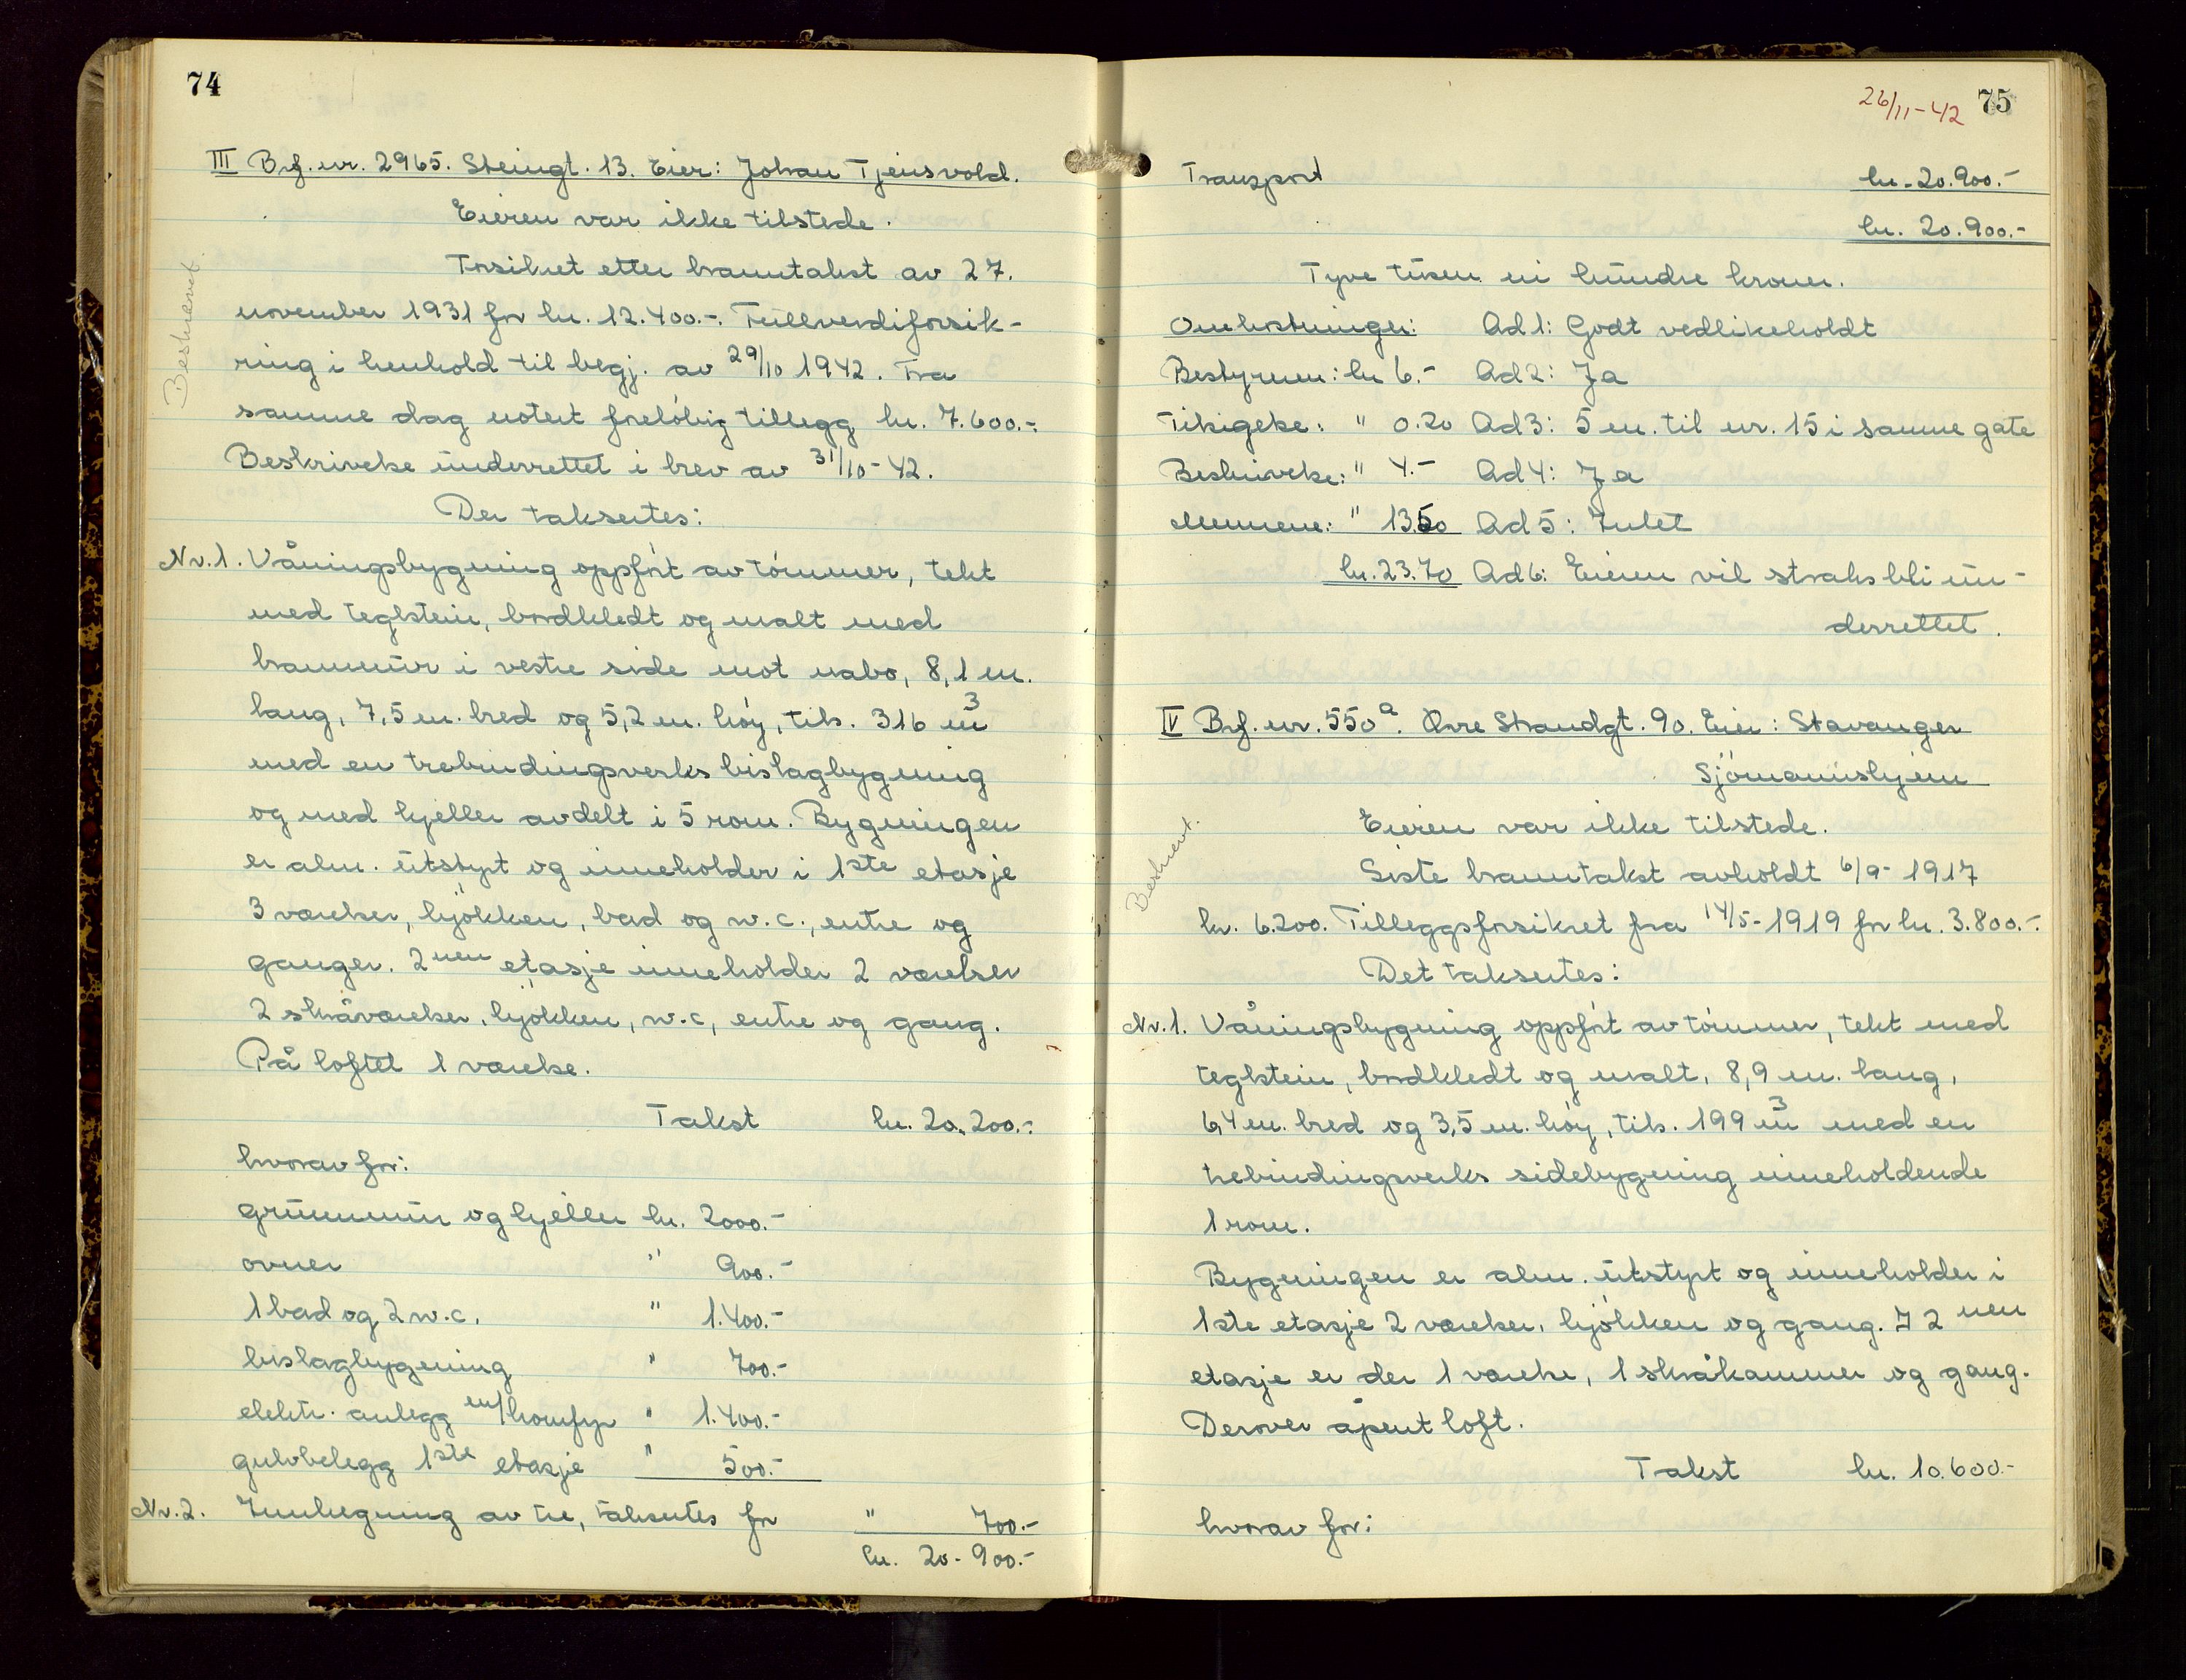 74
III Brf. nr. 2965. Steingt. 13. Eier: Johan Tjensvold.
Eieren var ikke tilstede.
Beskrevet.
Forsikret etter branntakst av 27.
november 1931 for kr. 12.400.-. Fullverdiforsik-
ring i henhold til begj. av 29/10 1942. Fra
samme dag notert foreløbig tillegg kr. 7.600.-.
Beskrivelse underrettet i brev av 31/10-42.
Der takseres:
Nr. 1. Våningsbygning oppført av tømmer, tekt
med teglstein, bordkledt og malt med
brannmur i vestre side mot nabo, 8,1 m.
lang, 7,5 m. bred og 5,2 m. høy, tils. 316 m³
med en trebindingsverks bislagbygning
og med kjeller avdelt i 5 rom. Bygningen
er alm. utstyrt og inneholder i 1ste etasje
3 værelser, kjøkken, bad og w.c., entre og
ganger. 2nen etasje inneholder 2 værelser
2 skråværelser, kjøkken, w.c, entre og gang.
På loftet 1 værelse.
Takst kr. 20.200.-.
hvorav for:
grunnmur og kjeller kr. 2000.-
ovner " 900.-
1 bad og 2 w.c. " 1.400.-
bislagbygning " 700.-
elektr. anlegg m/komfyr " 1.400.-
gulvbelegg 1ste etasje " 500.-
Nr. 2. Innhegning av tre, takseres for " 700.-
kr. 20.900.-
26/11-42 75
Transport kr. 20.900.-
kr. 20.900.-
Tyve tusen ni hundre kroner.
Omkostninger: Ad 1: Godt vedlikeholdt
Bestyreren: kr 6.- Ad 2: Ja
Tilsigelse: " 0.20 Ad 3: 5 m. til nr. 15 i samme gate
Beskrivelse: " 4.- Ad 4: Ja
Mennene: " 13.50 Ad 5: Intet
kr. 23.70 Ad 6: Eieren vil straks bli un-
derrettet.
IV Brf. nr. 550a. Øvre Strandgt. 90. Eier: Stavanger
Sjømannshjem
Eieren var ikke tilstede.
Beskrevet.
Siste branntakst avholdt 6/9-1917
kr. 6.200. Tilleggsforsikret fra 14/5-1919 for kr. 3.800.-.
Det takseres:
Nr. 1. Våningsbygning oppført av tømmer, tekt med
teglstein, bordkledt og malt, 8,9 m. lang,
6,4 m. bred og 3,5 m. høy, tils. 199 m³ med en
trebindingsverks sidebygning inneholdende
1 rom.
Bygningen er alm. utstyrt og inneholder i
1ste etasje 2 værelser, kjøkken og gang. I 2nen
etasje er der 1 værelse, 1 skråkammer og gang.
Derover åpent loft.
Takst kr. 10.600.-
hvorav for: